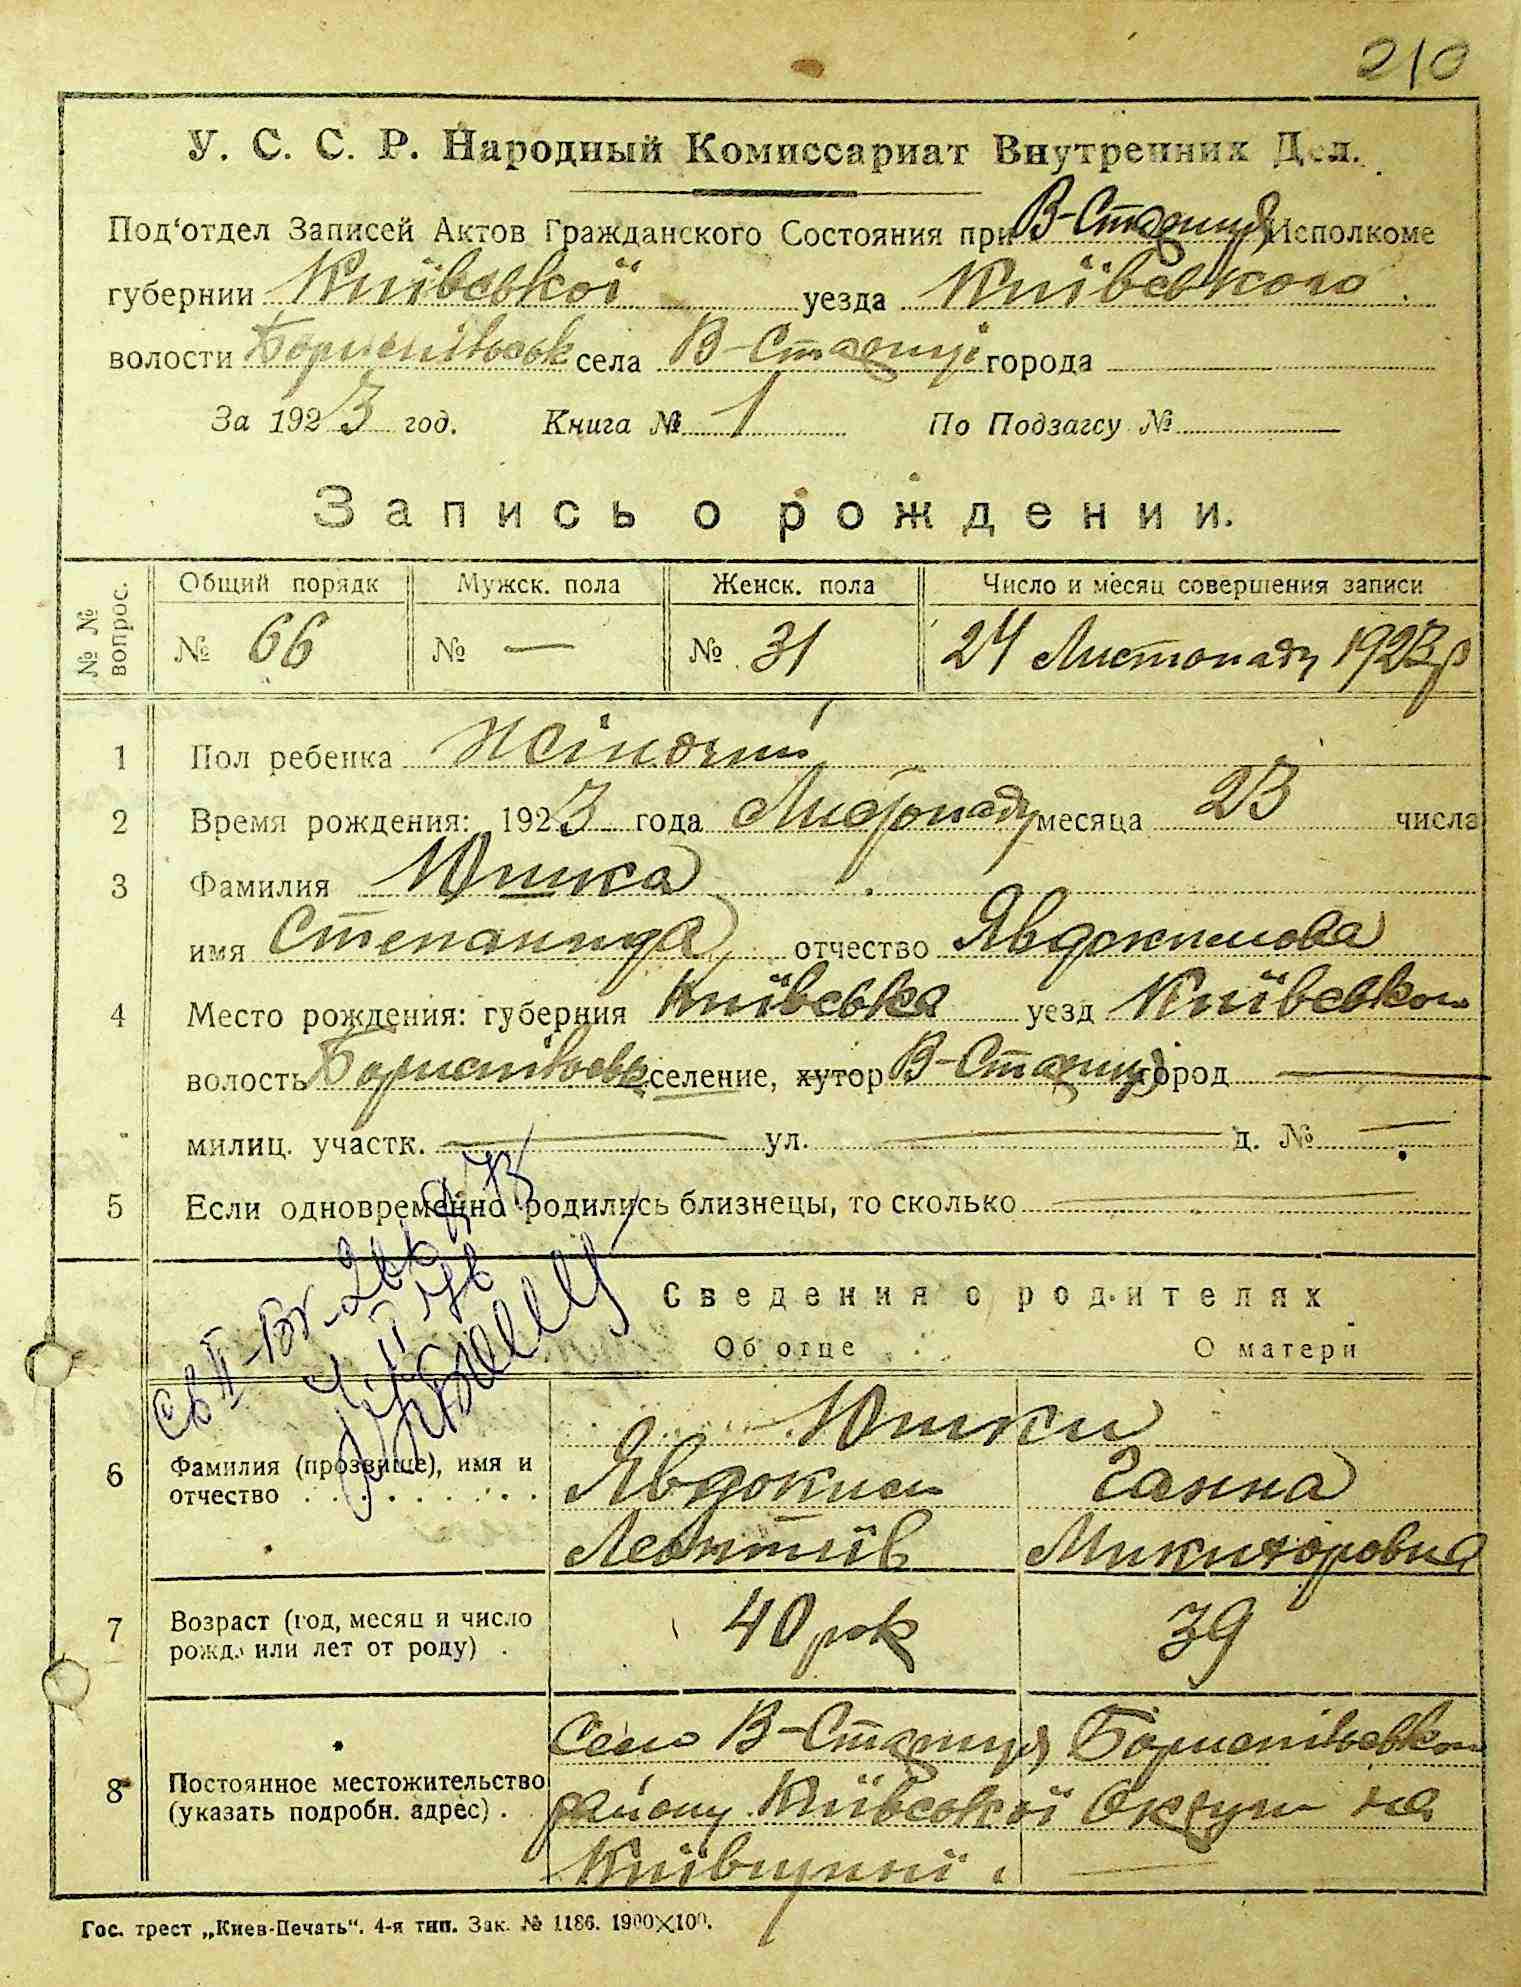 210
У. С. С. Р. Народный Комиссариат Внутренних Дел.
Под'отдел Записей Актов Гражданского Состояния при В-Стариця Исполкоме
губернии Київської уезда Київського
волости Бориспівськ села В-Стариці города
За 1923 год. Книга № 1 По Подзагсу №
Запись о рождении.
№ № вопрос. Общий порядк Мужск. пола Женск. пола Число и месяц совершения записи
№ 66 № — № 31 24 Листопаду 1923 р
1 Пол ребенка Жіночий
2 Время рождения: 1923 года Листопаду месяца 23 числа
3 Фамилия Юшка
имя Степанида отчество Явдокимова
4 Место рождения: губерния Київська уезд Київсько
волость Бориспівськ селение, хутор В-Стариця город —
милиц. участк. — ул. — д. № —
5 Если одновременно родились близнецы, то сколько —
Сведения о родителях
Об отце О матери
Юшки
6 Фамилия (прозвище), имя и отчество Явдоким Ганна
Леонтіїв Микихоровна
7 Возраст (год, месяц и число рожд. или лет от роду) 40 рок 39
8 Постоянное местожительство (указать подробн. адрес) Село В-Стариця Бориспівсько
району Київської Округи на
Київщині.
Гос. трест „Киев-Печать“. 4-я тип. Зак. № 1186. 1900×100.